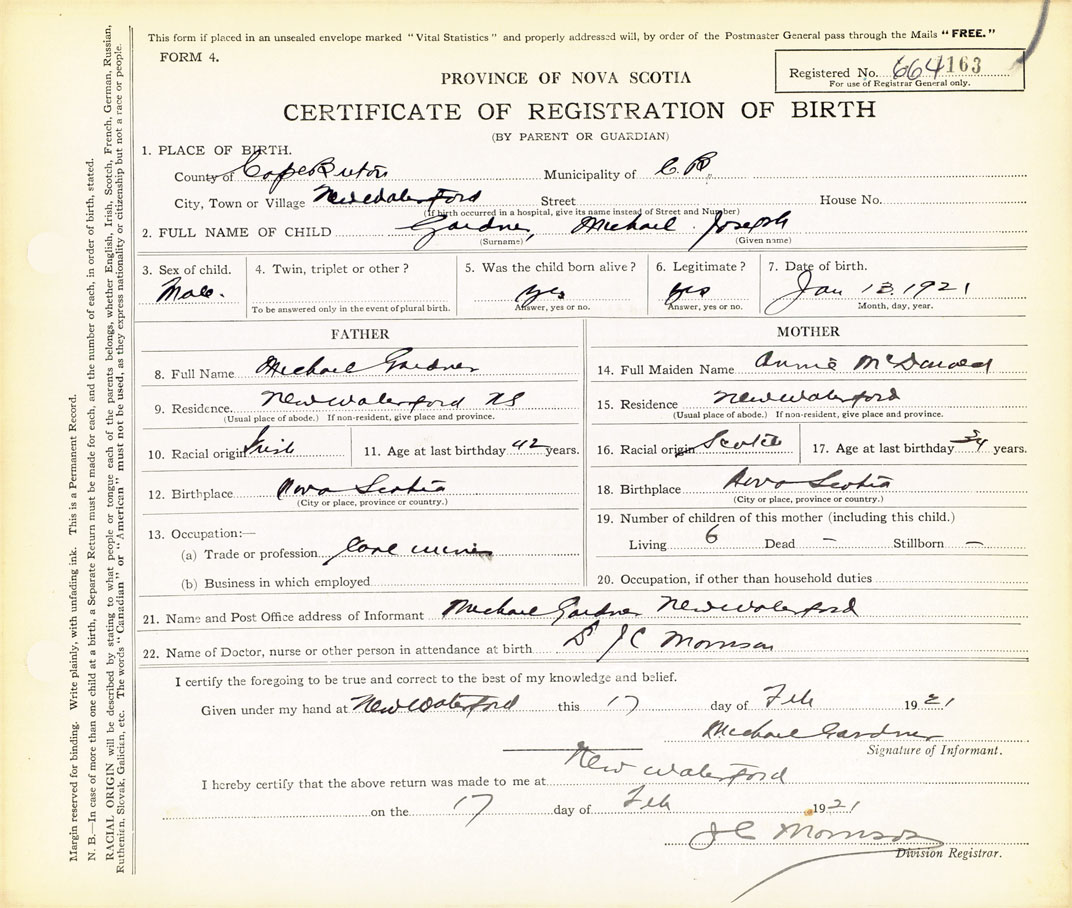 This form if placed in an unsealed envelope marked "Vital Statistics" and properly addressed will, by order of the Postmaster General pass through the Mails "FREE."
FORM 4.
Registered No. 664163
For use of Registrar General only.
PROVINCE OF NOVA SCOTIA
CERTIFICATE OF REGISTRATION OF BIRTH
(BY PARENT OR GUARDIAN)
1. PLACE OF BIRTH.
County of Cape Breton Municipality of C. B.
City, Town or Village New Waterford Street House No.
(If birth occurred in a hospital, give its name instead of Street and Number)
2. FULL NAME OF CHILD Gardner, Michael Joseph
(Surname) (Given name)
3. Sex of child. 4. Twin, triplet or other? 5. Was the child born alive? 6. Legitimate? 7. Date of birth.
Male. yes yes Jan 13. 1921
To be answered only in the event of plural birth. Answer, yes or no. Answer, yes or no. Month, day, year.
FATHER
8. Full Name Michael Gardner
9. Residence. New Waterford NS
(Usual place of abode.) If non-resident, give place and province.
10. Racial origin Irish 11. Age at last birthday 42 years.
12. Birthplace Nova Scotia
(City or place, province or country.)
13. Occupation:—
(a) Trade or profession Coal miner
(b) Business in which employed
MOTHER
14. Full Maiden Name Annie McDonald
15. Residence New Waterford
(Usual place of abode.) If non-resident, give place and province.
16. Racial origin Scotch 17. Age at last birthday 34 years.
18. Birthplace Nova Scotia
(City or place, province or country.)
19. Number of children of this mother (including this child.)
Living 6 Dead – Stillborn –
20. Occupation, if other than household duties
21. Name and Post Office address of Informant Michael Gardner New Waterford
22. Name of Doctor, nurse or other person in attendance at birth D J C Morrison
I certify the foregoing to be true and correct to the best of my knowledge and belief.
Given under my hand at New Waterford this 17 day of Feb 1921
Michael Gardner
Signature of Informant.
I hereby certify that the above return was made to me at New Waterford
on the 17 day of Feb 1921
J C Morrison
Division Registrar.
Margin reserved for binding. Write plainly, with unfading ink. This is a Permanent Record.
N. B.—In case of more than one child at a birth, a Separate Return must be made for each, and the number of each, in order of birth, stated.
RACIAL ORIGIN will be described by stating to what people or tongue each of the parents belongs, whether English, Irish, Scotch, French, German, Russian,
Ruthenian, Slovak, Galician, etc. The words "Canadian" or "American" must not be used, as they express nationality or citizenship but not a race or people.